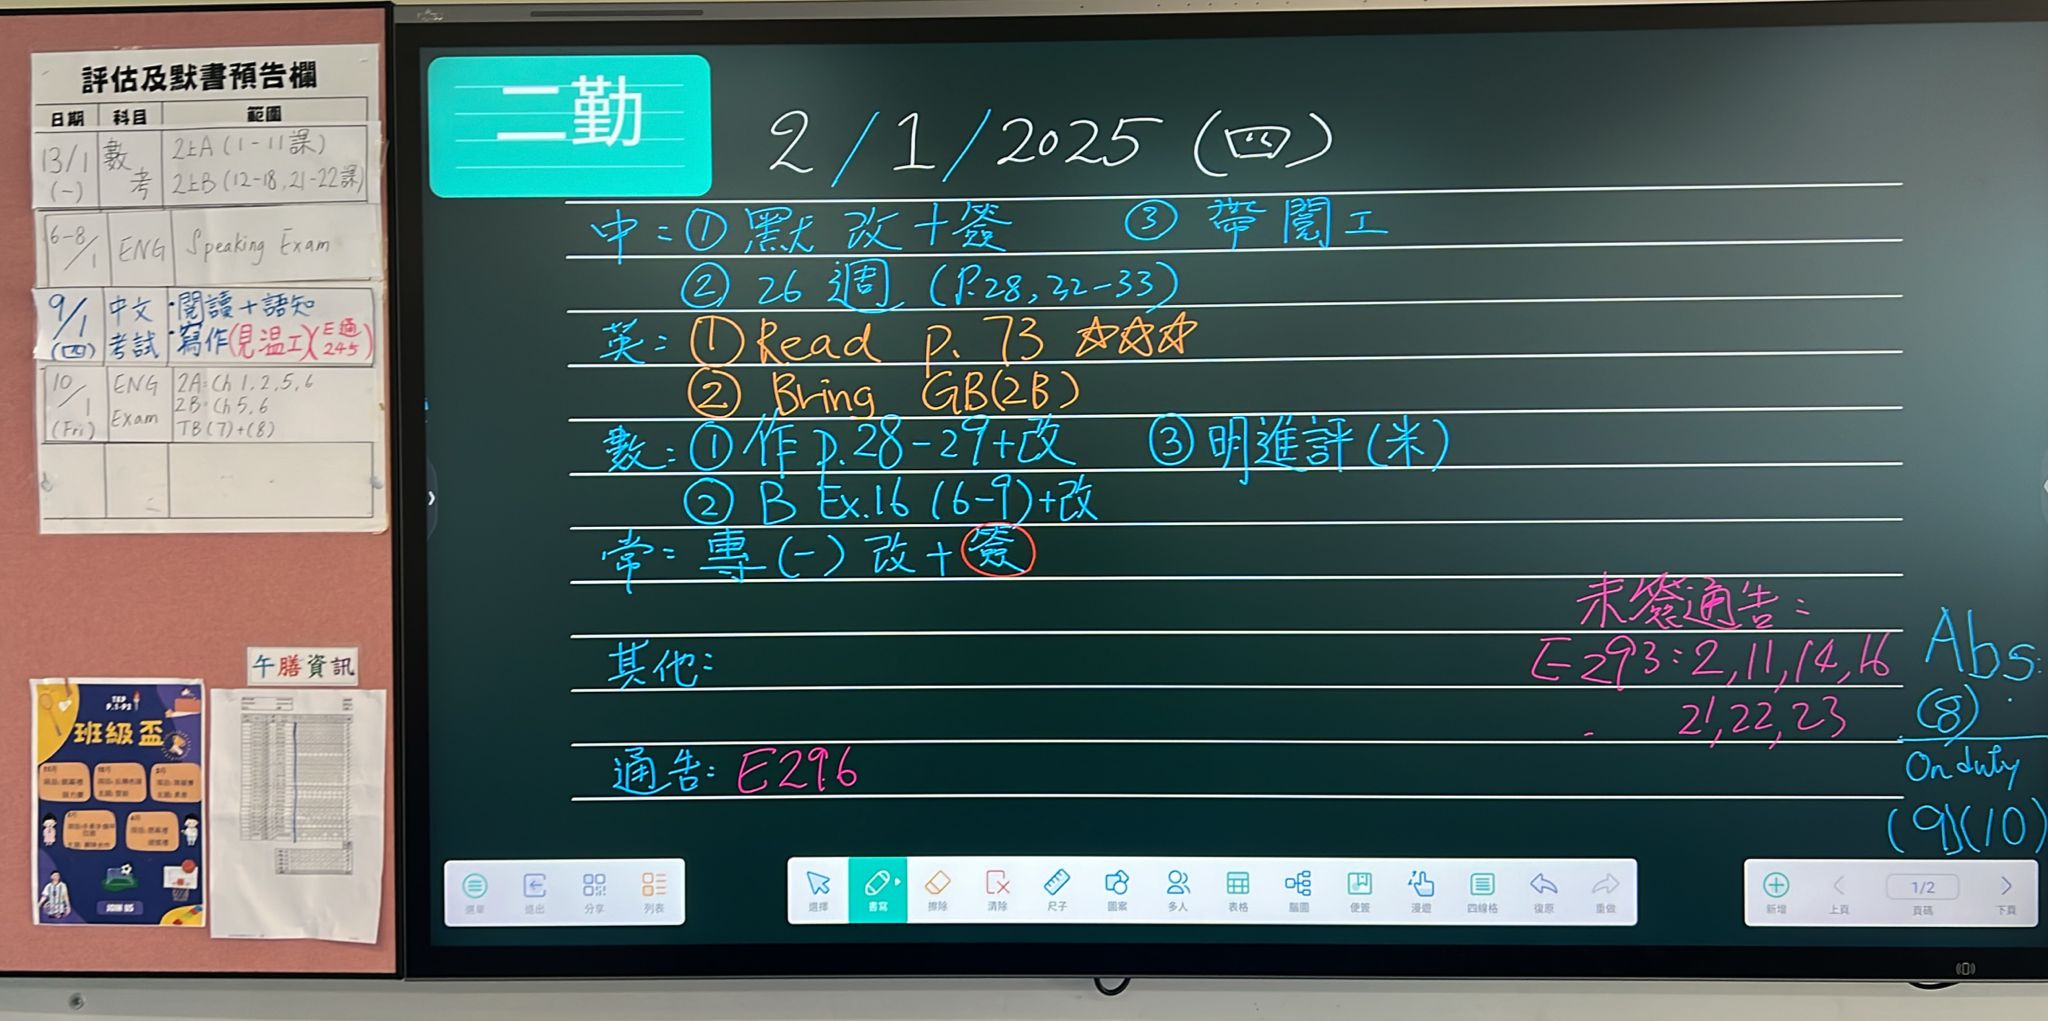 評估及默書預告欄
日期 科目 範圍
13/1 (一) 數考 2上A (1-11課)
2上B (12-18, 21-22課)
6-8/1 ENG Speaking Exam
9/1 (四) 中文考試 ·閱讀+語知
·寫作(見溫工)(E通245)
10/1 (Fri) ENG Exam 2A: Ch 1, 2, 5, 6
2B: Ch 5, 6
TB (7)+(8)
午膳資訊
班級盃
JOIN US
二勤
2/1/2025 (四)
中: ① 默 改+簽 ③ 帶閱工
② 26 週 (P.28, 32-33)
英: ① Read p. 73 ☆☆☆
② Bring GB(2B)
數: ① 作 p.28-29+改 ③ 明進評(米)
② B Ex.16 (6-9)+改
常: 專(一) 改+簽
其他:
通告: E296
未簽通告:
E293: 2, 11, 14, 16
21, 22, 23
Abs:
(8)
On duty
(9)(10)
選單 退出 分享 列表
選擇 書寫 擦除 清除 尺子 圖案 多人 表格 腦圖 便簽 漫遊 四線格 復原 重做
新增 上頁 1/2 頁碼 下頁